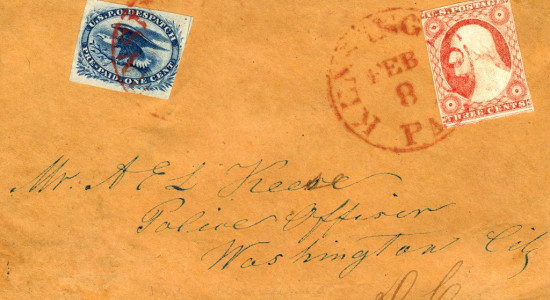 U.S.P.O. DESPATCH
PRE-PAID ONE CENT
KENSINGTON
FEB
8
PA
U.S. POSTAGE
THREE CENTS
Mr. A E L Keese
Police Officer
Washington City
D.C.